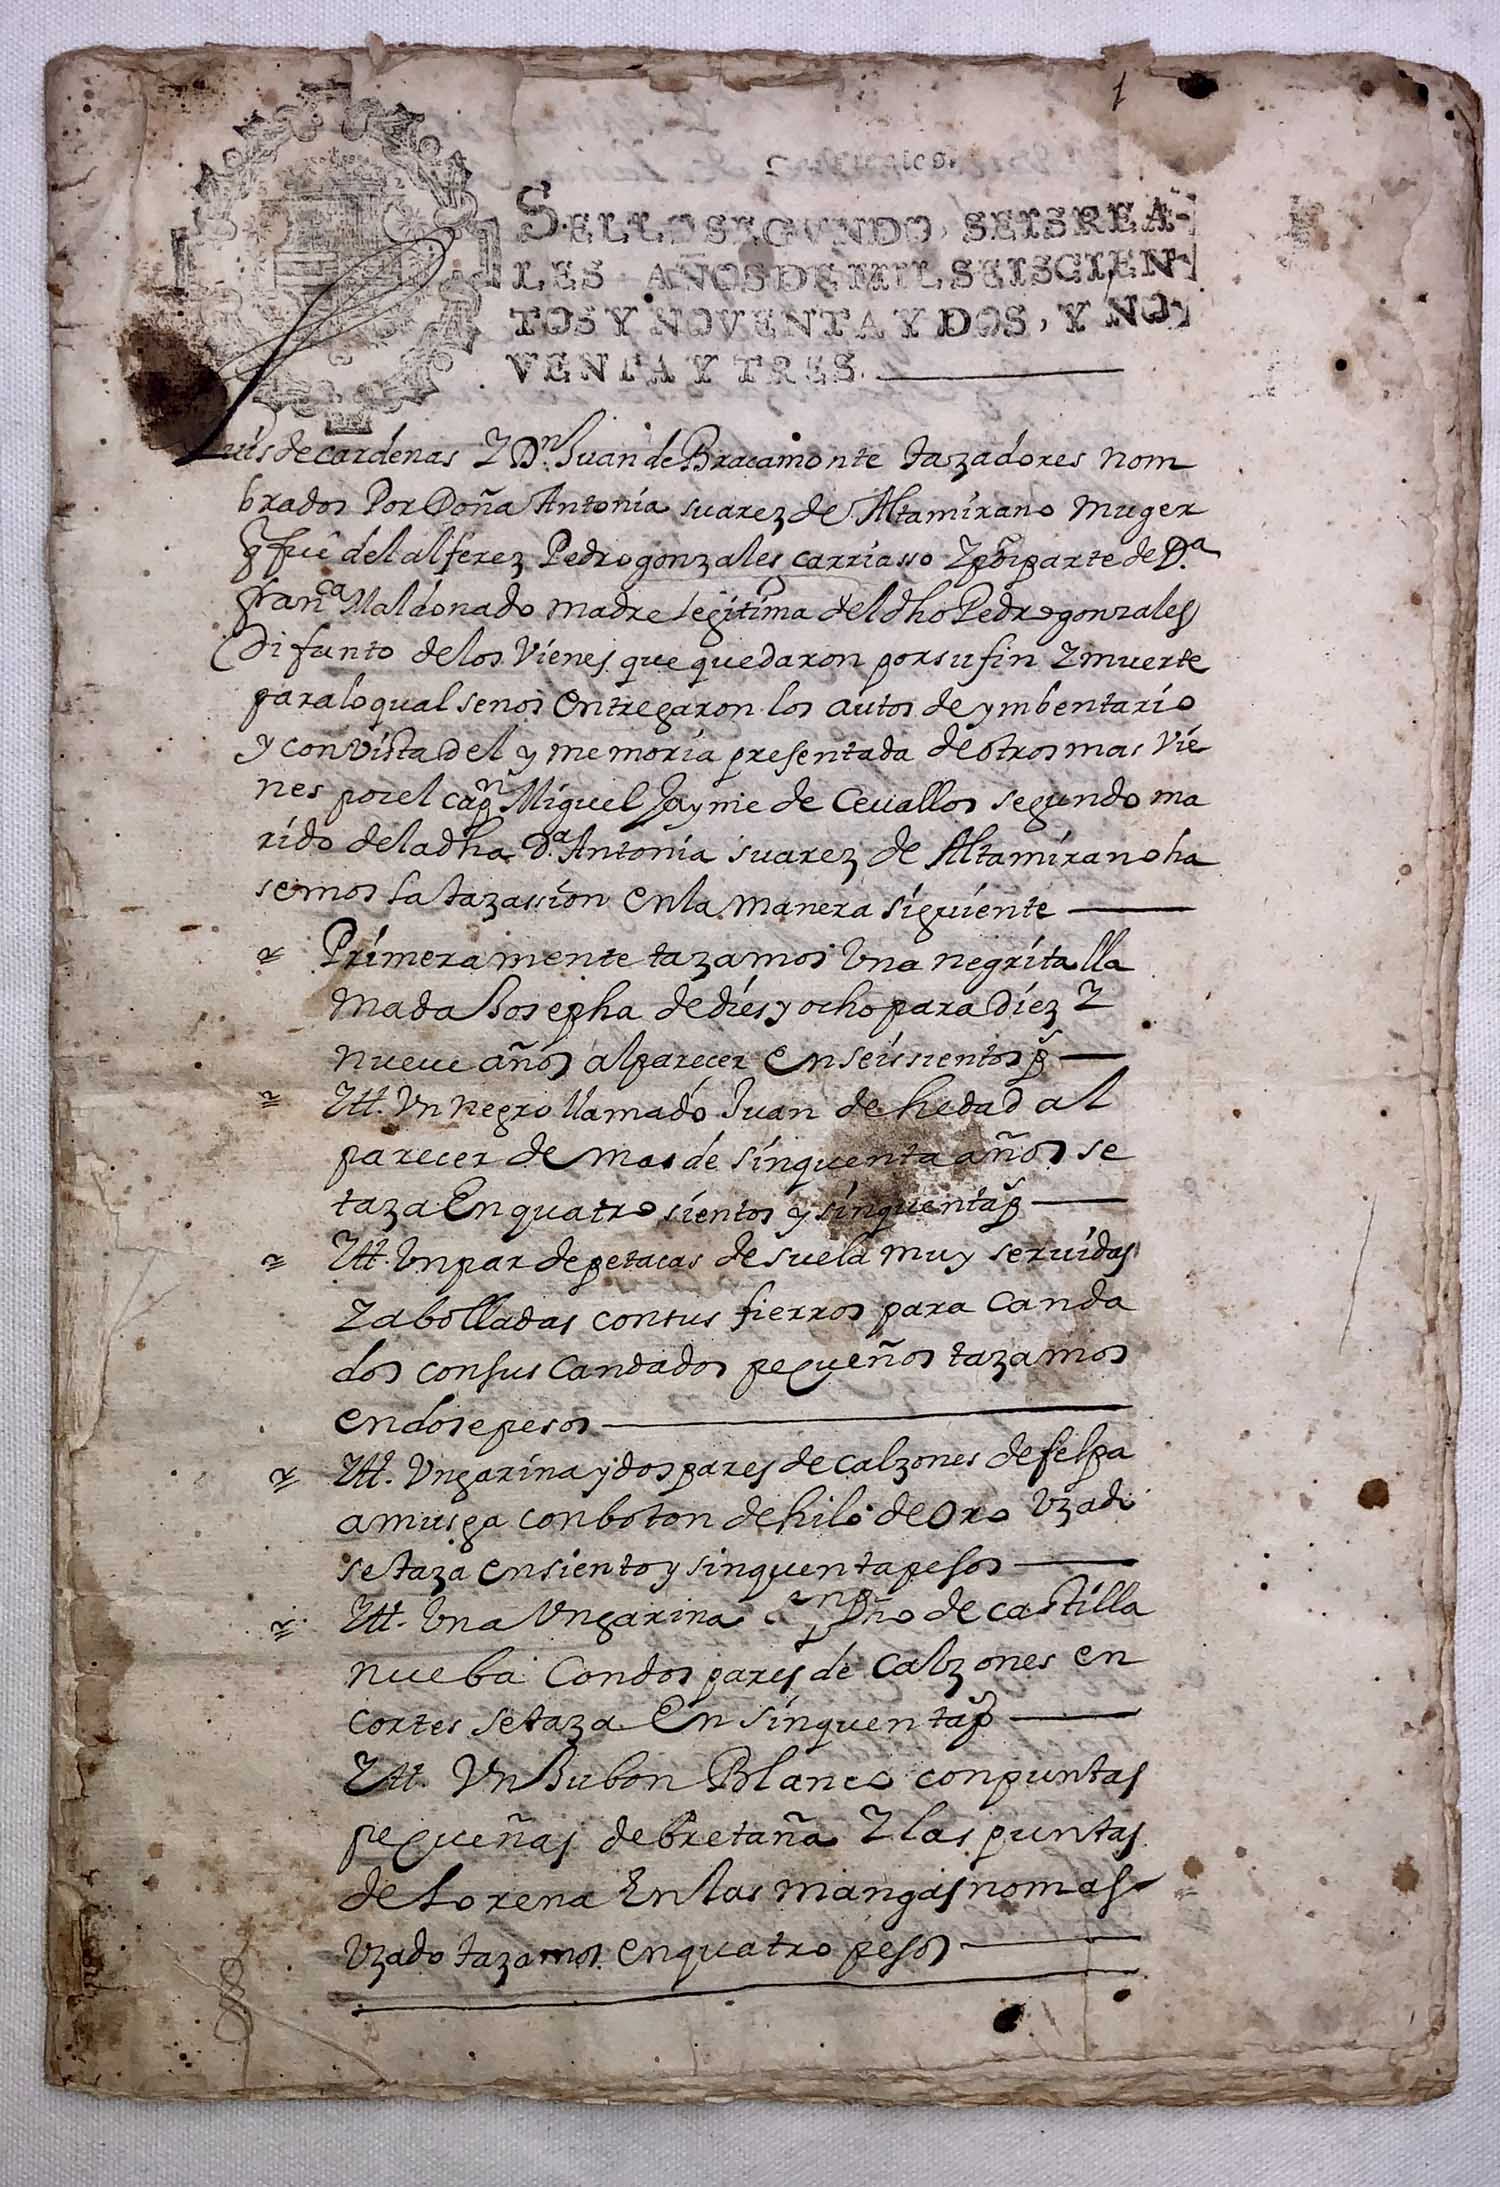 1
SELLO SEGVNDO, SEIS REA-
LES AÑOS DE MIL SEISCIEN-
TOS Y NOVENTA Y DOS, Y NO-
VENTA Y TRES.
Luis de cardenas Y Dn. Juan de Bracamonte tazadores nom
brados Por Doña Antonia suarez de Altamirano muger
q fue del alferez Pedro gonzales carriasso Y por parte de Da.
franca Maldonado madre legitima del dho Pedro gonzales
Difunto de los Vienes que quedaron por su fin Y muerte
para lo qual se nos entregaron los autos de ymbentario
y con vista del y memoria presentada de otros mas Vie
nes por el capn Miguel Jayme de Cevallos segundo ma
rido de la dha Da Antonia suarez de Altamirano ha
semos la tazassion en la manera siguiente
Primeramente tazamos Una negrita lla
mada Josepha de dies y ocho para diez Y
nueve años al parecer en seissientos p
Ytt. Un negro llamado Juan de hedad al
parecer de mas de sinquenta años se
taza En quatro sientos y sinquenta p
Ytt. Un par de petacas de suela muy servidas
Y abolladas con sus fierros para canda
dos con sus candados pequeños tazamos
en dose pesos
Ytt. Ungarina y dos pares de calzones de felpa
amusga con boton de hilo de oro Uzado
se taza en siento y sinquenta pesos
Ytt. Una Ungarina pño de castilla
nueba con dos pares de calzones en
cortes se taza En sinquenta p
Ytt. Un Jubon Blanco con puntas
pequeñas de bretaña Y las puntas
de Lorena En las mangas nomas
Uzado tazamos en quatro pesos